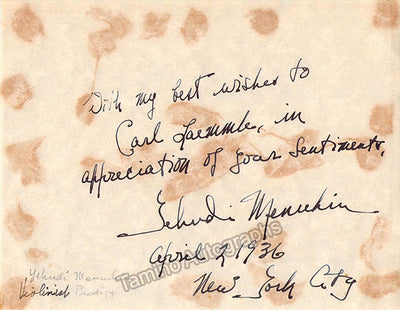 With my best wishes to
Carl Laemmle, in
appreciation of your sentiments,
Yehudi Menuhin
April, 1936
New York City
Yehudi Menuhin
Violinist Prodigy
Tamino Autographs